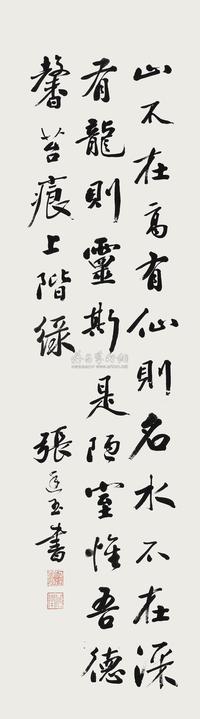 山不在高有仙則名水不在深
有龍則靈斯是陋室惟吾德
馨苔痕上階綠
張廷玉書